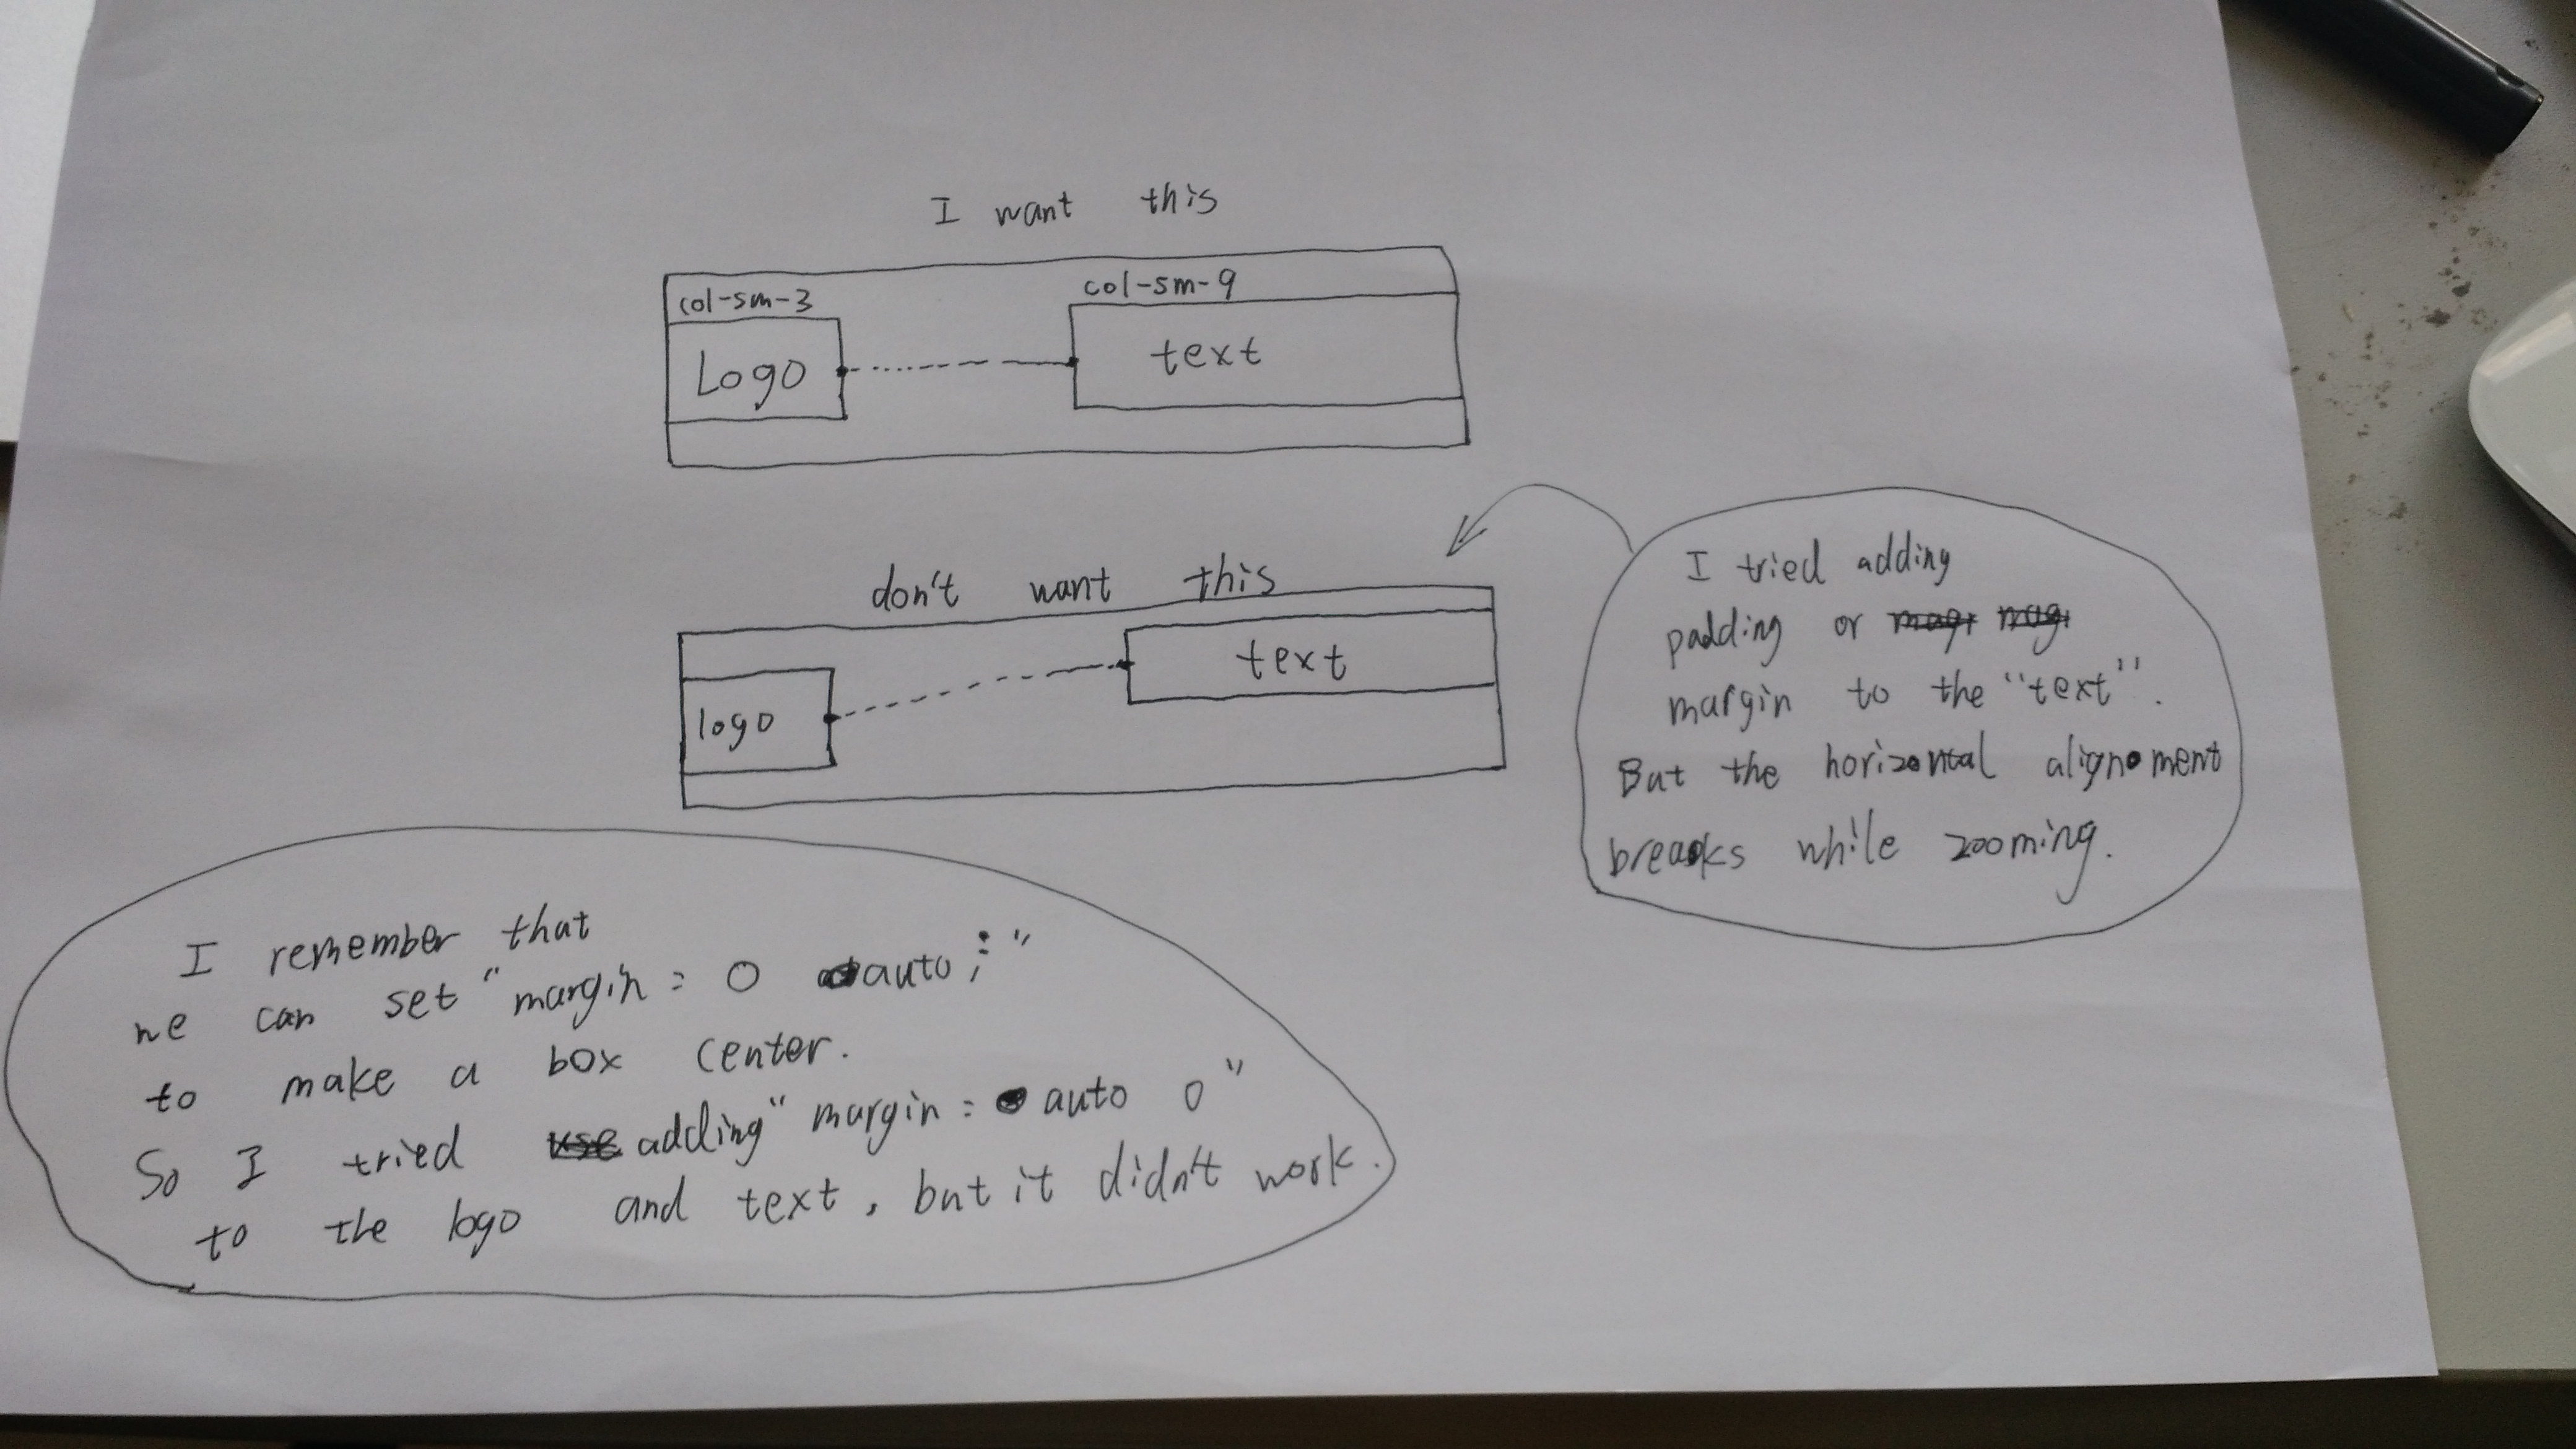 I want this
col-sm-3 col-sm-9
Logo text
don't want this
logo text
I tried adding
padding or
margin to the "text".
But the horizontal alignment
breaks while zooming.
I remember that
we can set "margin : 0 auto ; "
to make a box center.
So I tried adding "margin : auto 0"
to the logo and text, but it didn't work.